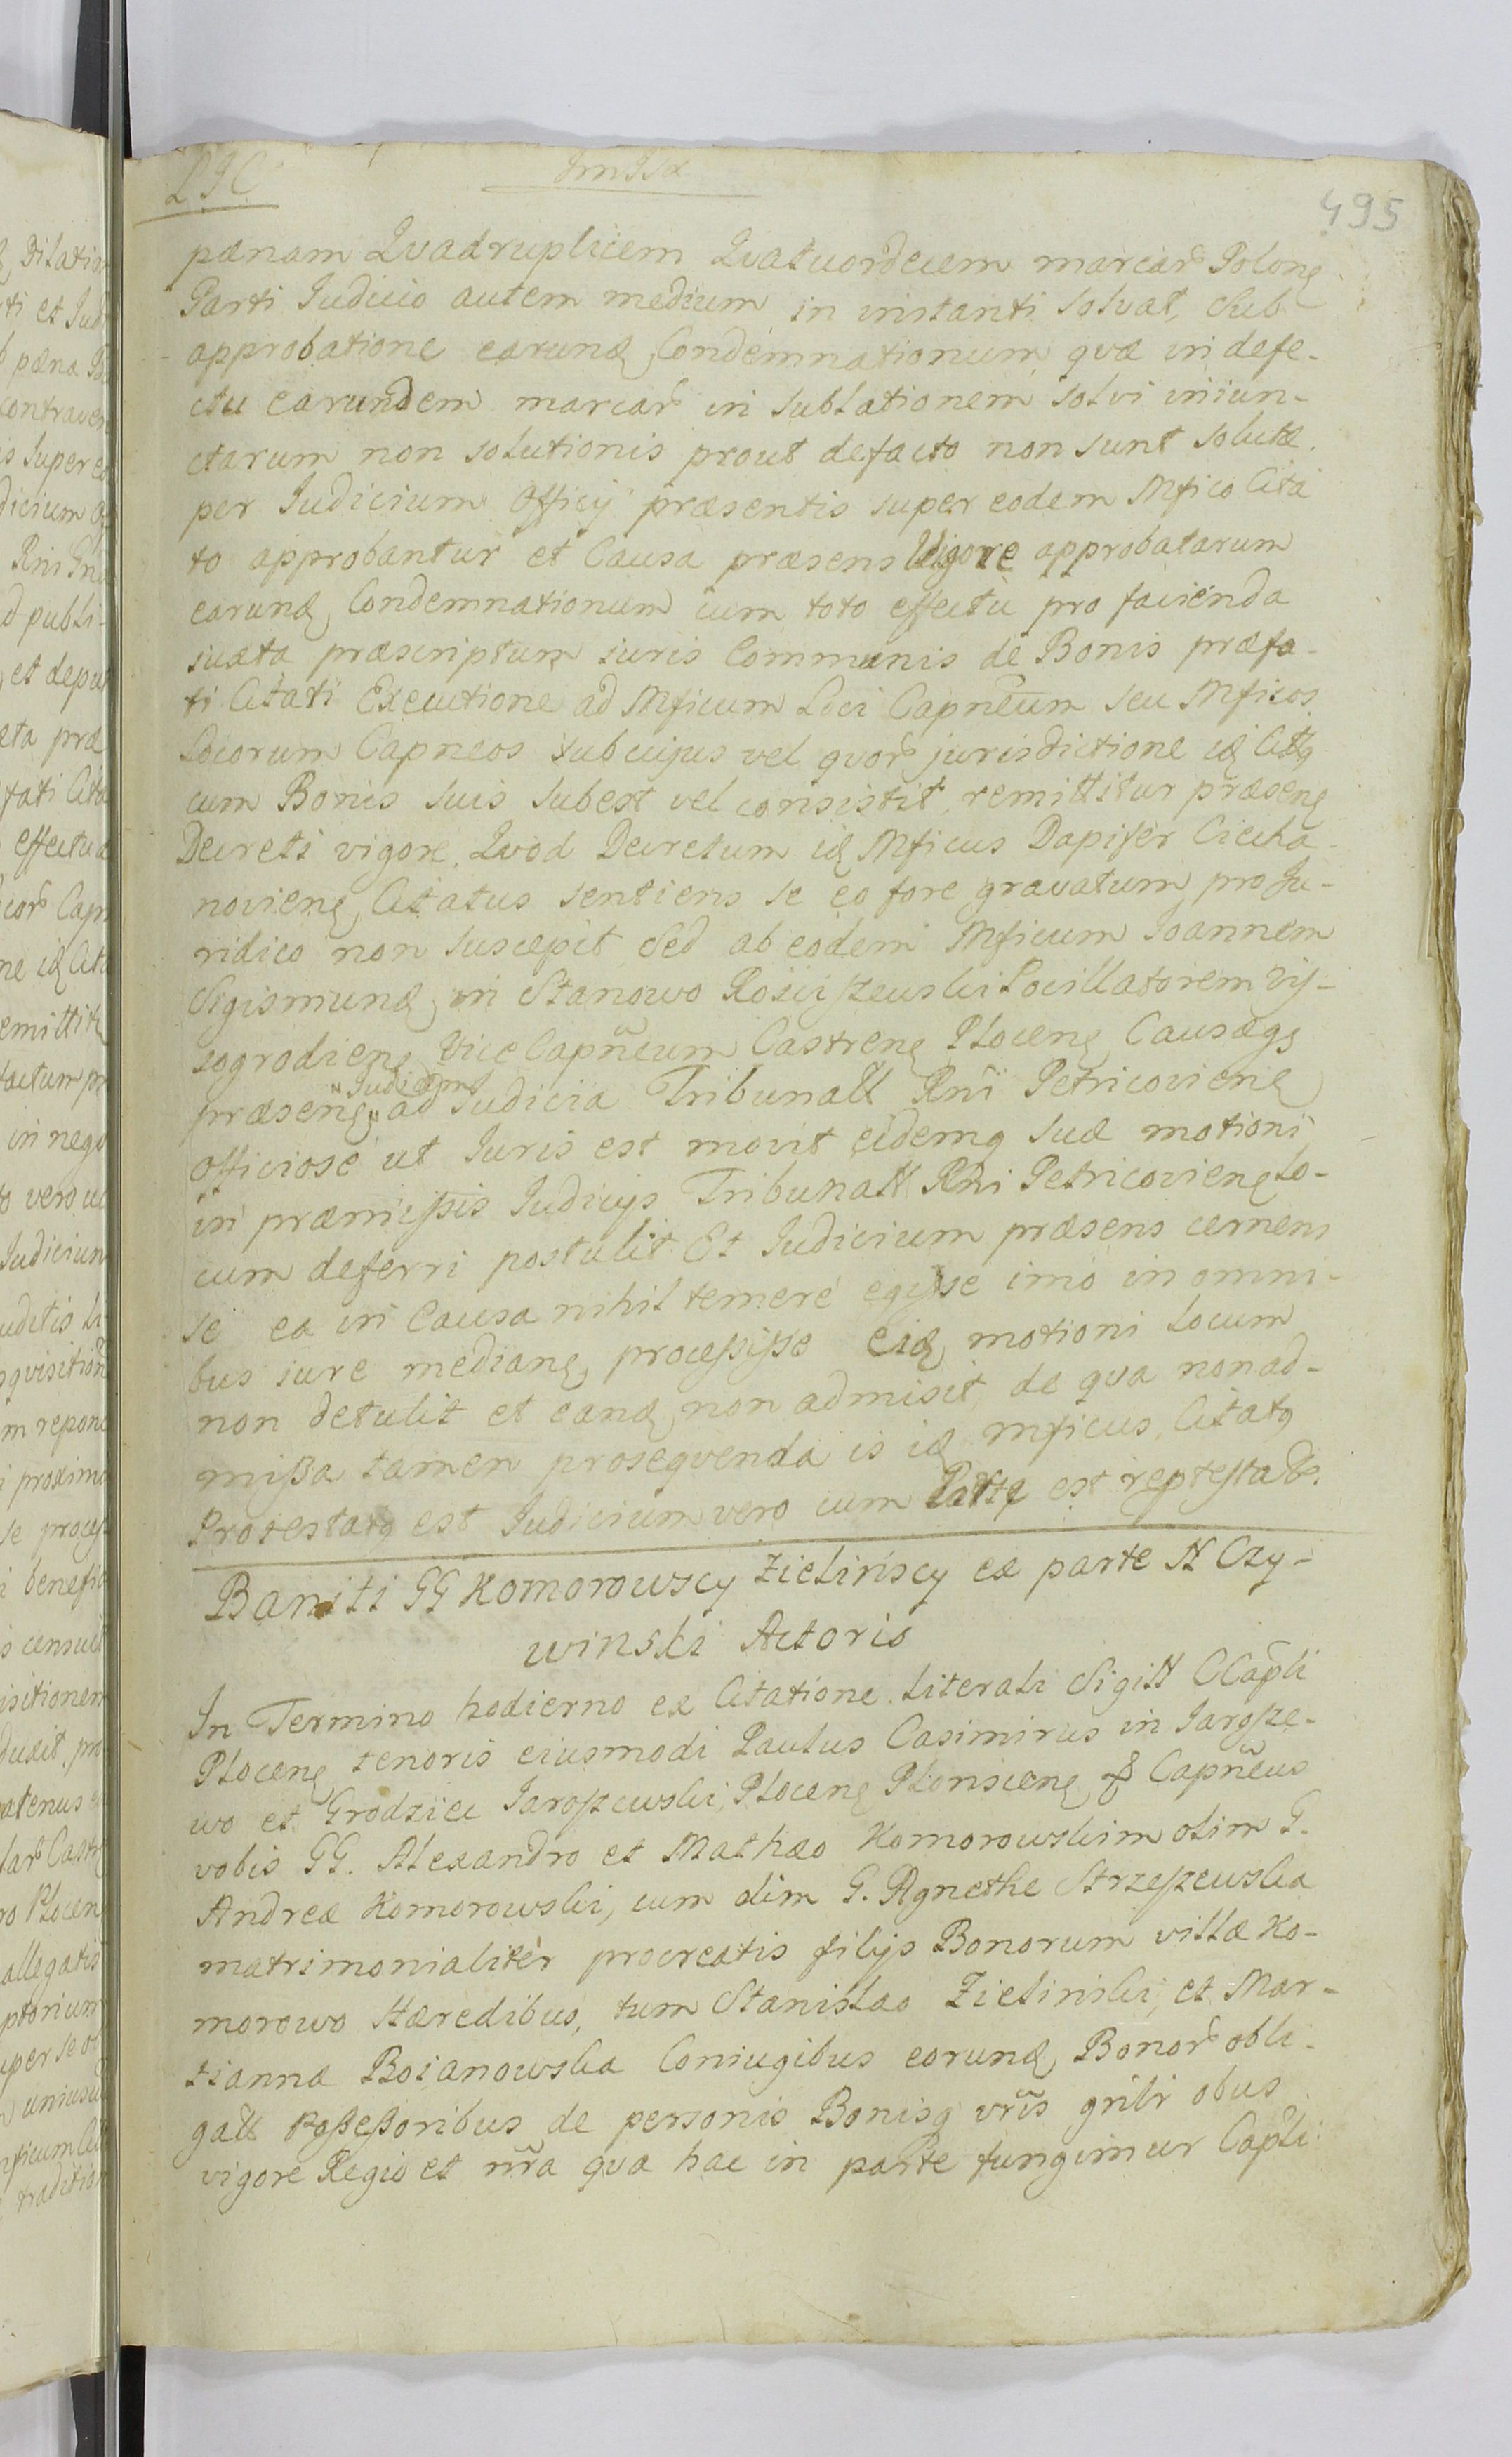 495
pænam Qvadruplicem Qvatuordecem marcar Polonę
Parti Iudicio autem medium in instanti solvat, sub
approbatione earund, Condemnationum, qvæ in defe-
ctu earundem marcar in sublationem solvi iniun-
ctarum non solutionis prout defacto non sunt solutæ.
per Iudicium Officÿ præsentis super eodem Mfico Cita
to approbantur et Causa præsens Vigore approbatarum
earund, Condemnationum cum toto effectu pro facienda
iuxta præscriptum iuris Communis de Bonis præfa-
ti Citati Executione ad Mficum Loci Capneum seu Mficos
Locorum Capneos sub cujus vel qvor jurisdictione id Citatq
cum Bonis suis subest vel consistit, remittitur præsenę
Decreti vigore. Qvod Decretum id Mficus Dapifer Ciecha-
novienę, Citatus sentiens se eo fore gravatum, pro Ju-
ridico non suscepit, sed ab eodem Mficum Ioannem
Sigismund, in Stanowo Rościszewski Pocillatorem Vÿ-
sogrodienę Vice Capneum Castrenę Plocenę Causæqȝ
præsenę, ad Iudicia Tribunall Rni Petricovienę
officiosé ut Iuris est movit eidemq suæ motioni
in præmissis Iudicijs Tribunall Rni Petricovienę lo-
cum deferri postulit. Et Iudicium præsens cernens
se ea in Causa nihil temeré egisse imó in omni-
bus iure medianę, processisse eid, motioni locum
non detulit et eand, non admisit, de qva non ad-
missa tamen proseqvenda is id Mficus, Citatq
Protestatq est Iudicium vero cum Parte est reptestatt.
Baniti GG Komorowscy Zielinscy ex parte N Czy-
winski Actoris
In Termino hodierno ex Citatione Literali Sigill CCapli
Plocenę tenoris eiusmodi Paulus Casimirus in Iarosze-
wo et Grodziec Iaroszewski, Plocenę Plonscenę & Capneus
vobis GG. Alexandro et Mathæo Komorowskim olim G.
Andreæ Komorowski, cum olim G. Agnethe Strzeszewska
matrimonialitèr procreatis filijs Bonorum villæ Ko-
morowo Hæredibus, tum Stanislao Zielinski, et Mar-
iannæ Boianowska Coniugibus eorund, Bonor obli-
gatt Possessoribus de personis Bonisq vris gnlr obus
vigore Regio et nra qva hac in parte fungimur Capli